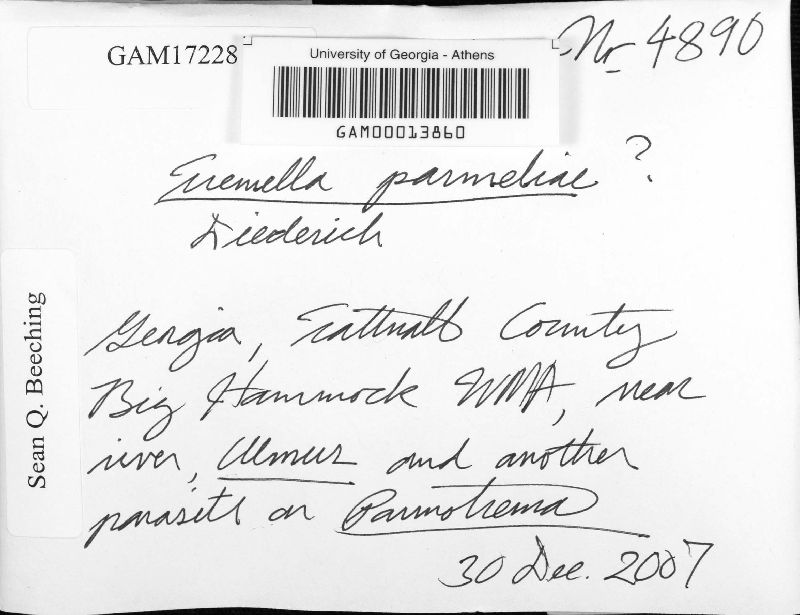 GAM17228
University of Georgia - Athens
GAM00013860
No 4890
Tremella parmeliae ?
Diederich
Georgia, Tattnall County
Big Hammock WMA, near
river, Ulmus and another
parasite on Parmotrema
30 Dec. 2007
Sean Q. Beeching